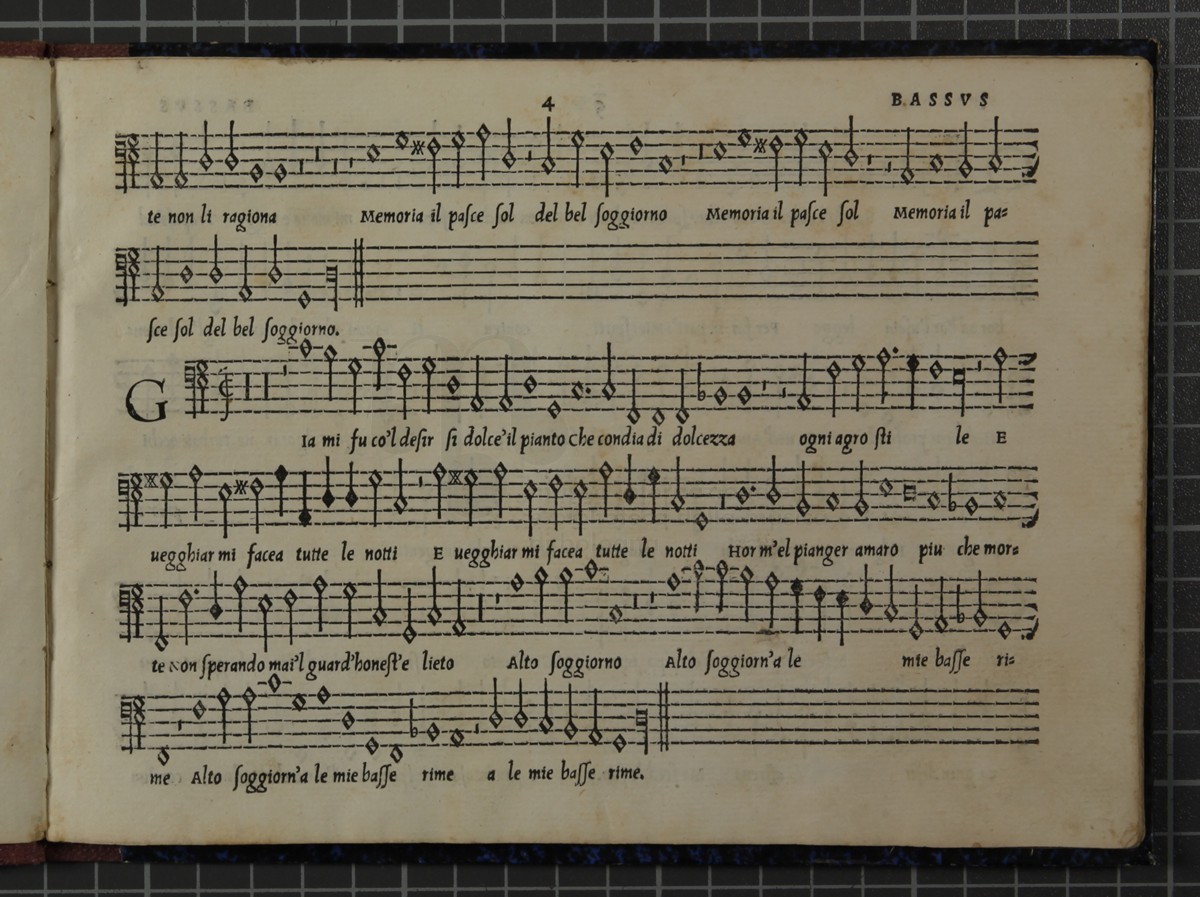 4 BASSVS
te non li ragiona Memoria il paſce ſol del bel ſoggiorno Memoria il paſce ſol Memoria il pa=
ſce ſol del bel ſoggiorno.
G
Ia mi fu co'l deſir ſi dolce'il pianto Che condia di dolcezza ogni agro ſti le E
uegghiar mi facea tutte le notti E uegghiar mi facea tutte le notti Hor m'el pianger amaro piu che mor=
te Non ſperando mai'l guard'honeſt'e lieto Alto ſoggiorno Alto ſoggiorn'a le mie baſſe ri=
me Alto ſoggiorn'a le mie baſſe rime a le mie baſſe rime.